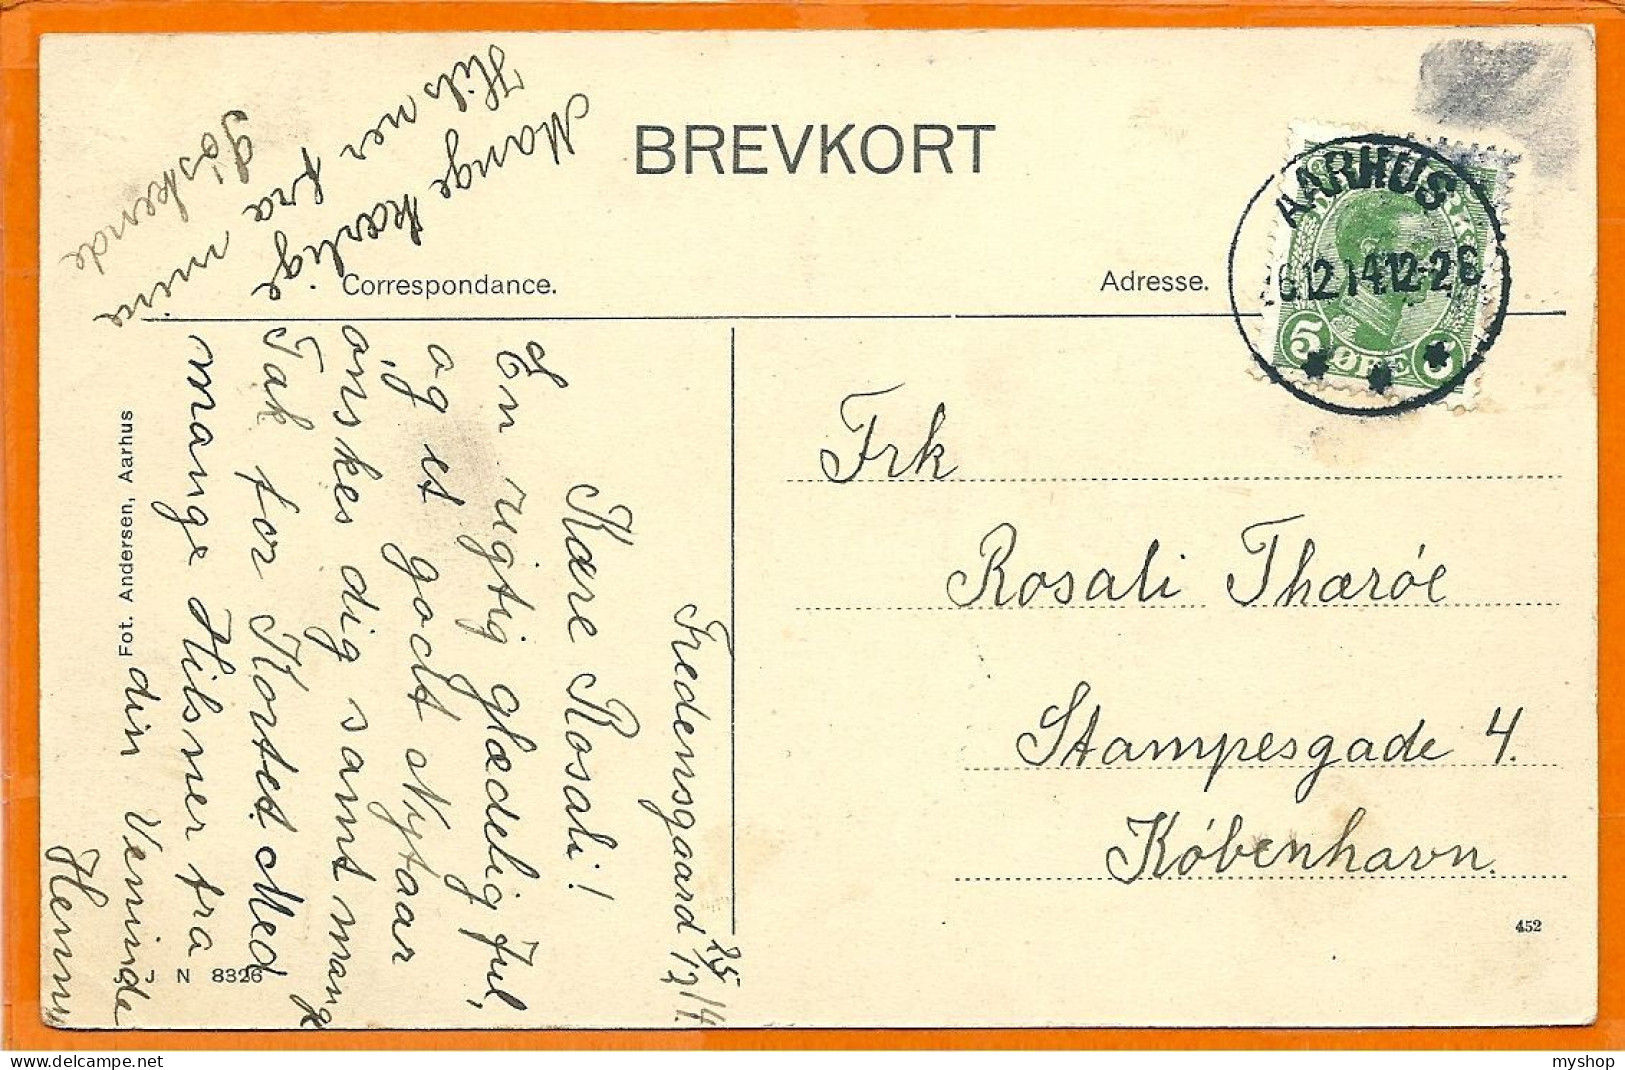 BREVKORT
Correspondance.
Adresse.
AARHUS
6.12.14.12-2E
5 ØRE 5
Frk
Rosali Thærøe
Stampesgade 4.
København.
452
Fredensgaard 25/12/14.
Kære Rosali!
En rigtig glædelig Jul,
og et godt Nytaar
ønskes dig samt mang
Tak for Kortet Med
mange Hilsner fra
din Veninde
Henny
Mange kærlige
Hilsner fra mine
Søskende
Fot. Andersen, Aarhus
J N 8326
myshop